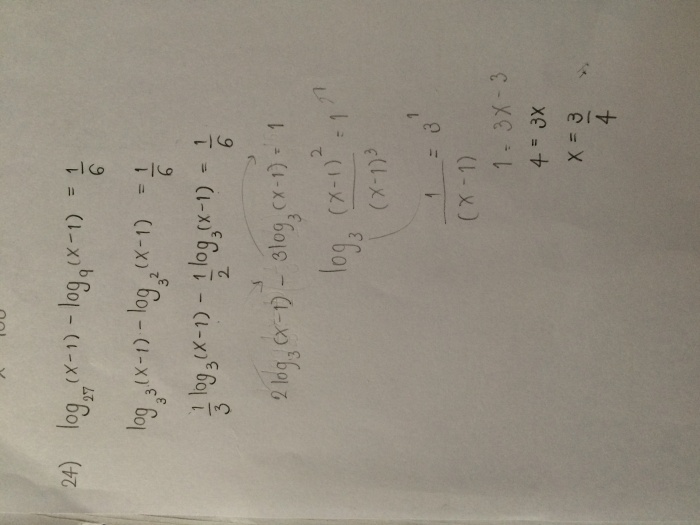 24) log₂₇(x-1) - log₉(x-1) = 1/6
log₃³(x-1) - log₃²(x-1) = 1/6
1/3 log₃(x-1) - 1/2 log₃(x-1) = 1/6
2log₃(x-1) - 3log₃(x-1) = 1
log₃ (x-1)²/(x-1)³ = 1
1/(x-1) = 3¹
1 = 3x - 3
4 = 3x
x = 3/4